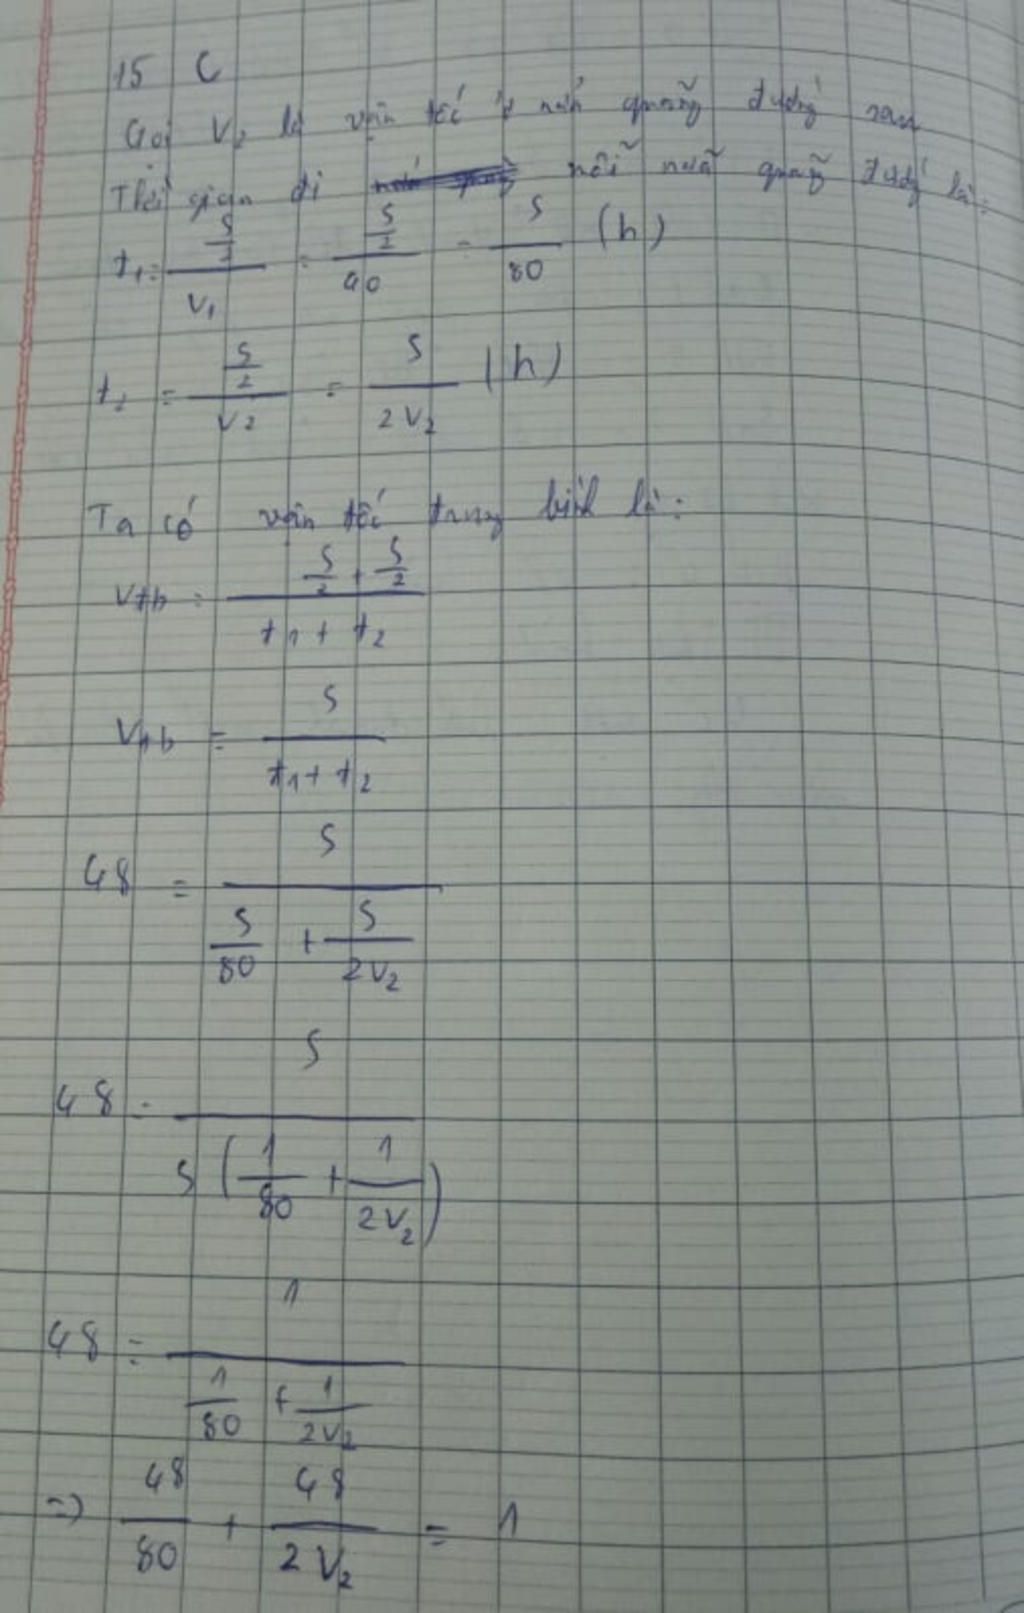 15 C
Gọi V2 là vận tốc ở nửa quãng đường sau
Thời gian đi mỗi nửa quãng đường là:
t1 = (S/2)/V1 = (S/2)/40 = S/80 (h)
t2 = (S/2)/V2 = S/(2V2) (h)
Ta có vận tốc trung bình là:
Vtb = (S/2 + S/2)/(t1 + t2)
Vtb = S/(t1 + t2)
48 = S/(S/80 + S/(2V2))
48 = S/(S(1/80 + 1/(2V2)))
48 = 1/(1/80 + 1/(2V2))
=> 48/80 + 48/(2V2) = 1